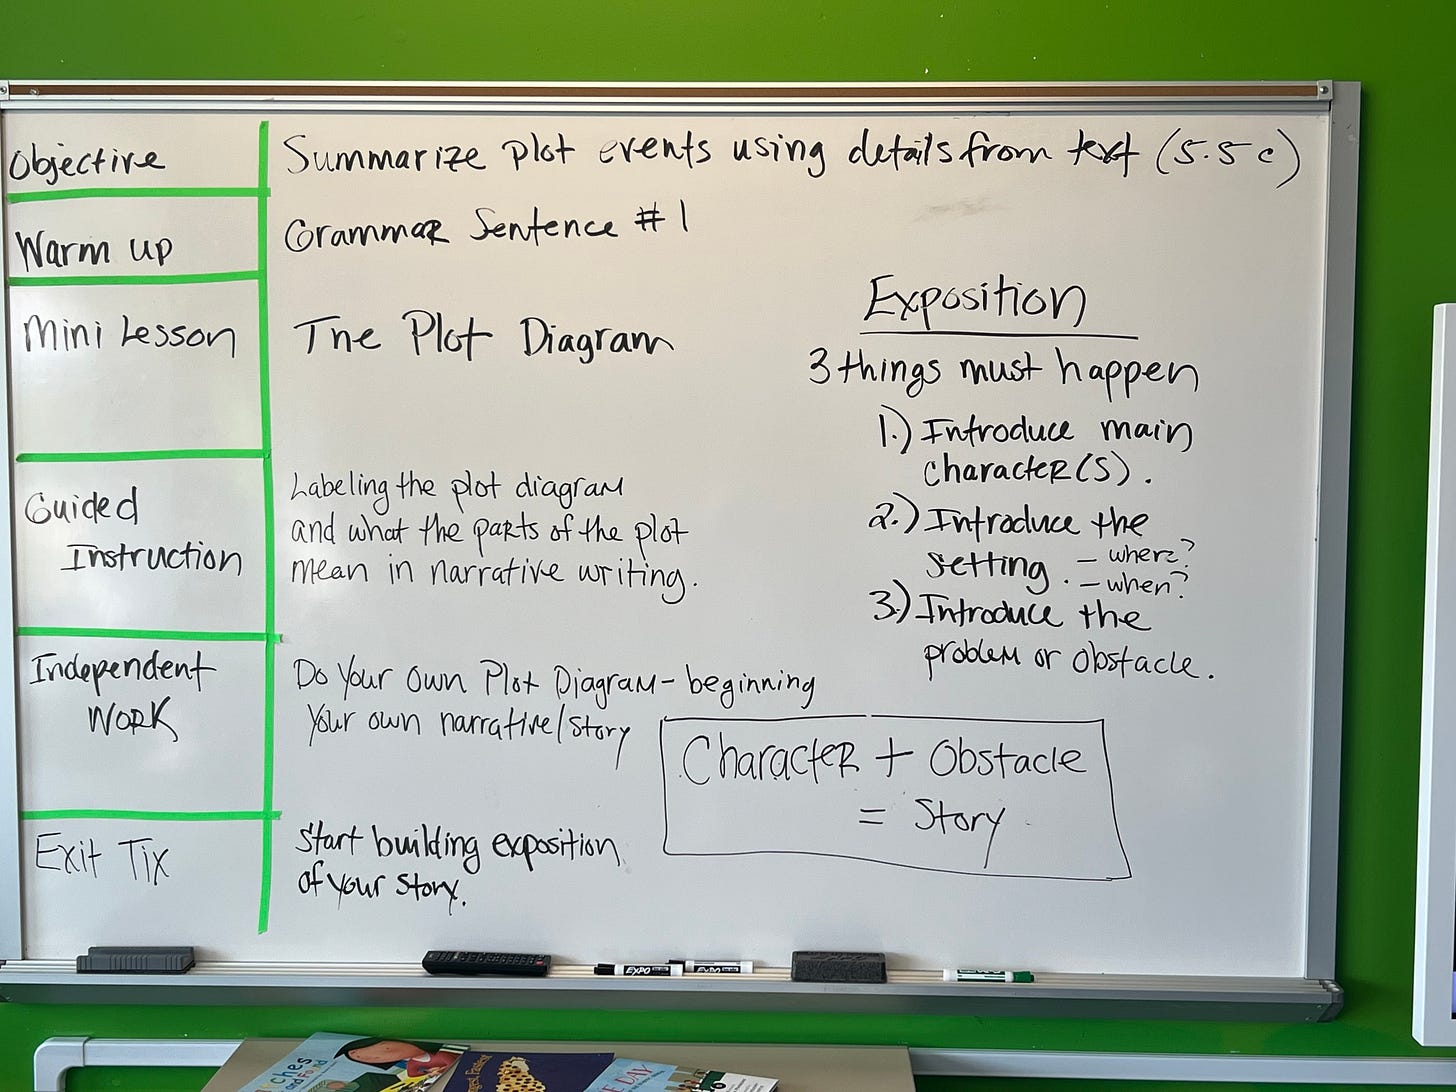 Objective
Summarize plot events using details from text (5.5 c)
Warm up
Grammar Sentence #1
Mini Lesson
The Plot Diagram
Guided
Instruction
Labeling the plot diagram
and what the parts of the plot
mean in narrative writing.
Independent
Work
Do Your Own Plot Diagram - beginning
Your own narrative/story
Exit Tix
Start building exposition
of your story.
Exposition
3 things must happen
1.) Introduce main
character(s).
2.) Introduce the
setting. - where?
- when?
3.) Introduce the
problem or obstacle.
Character + Obstacle
= Story
EXPO
EXPO
DAY